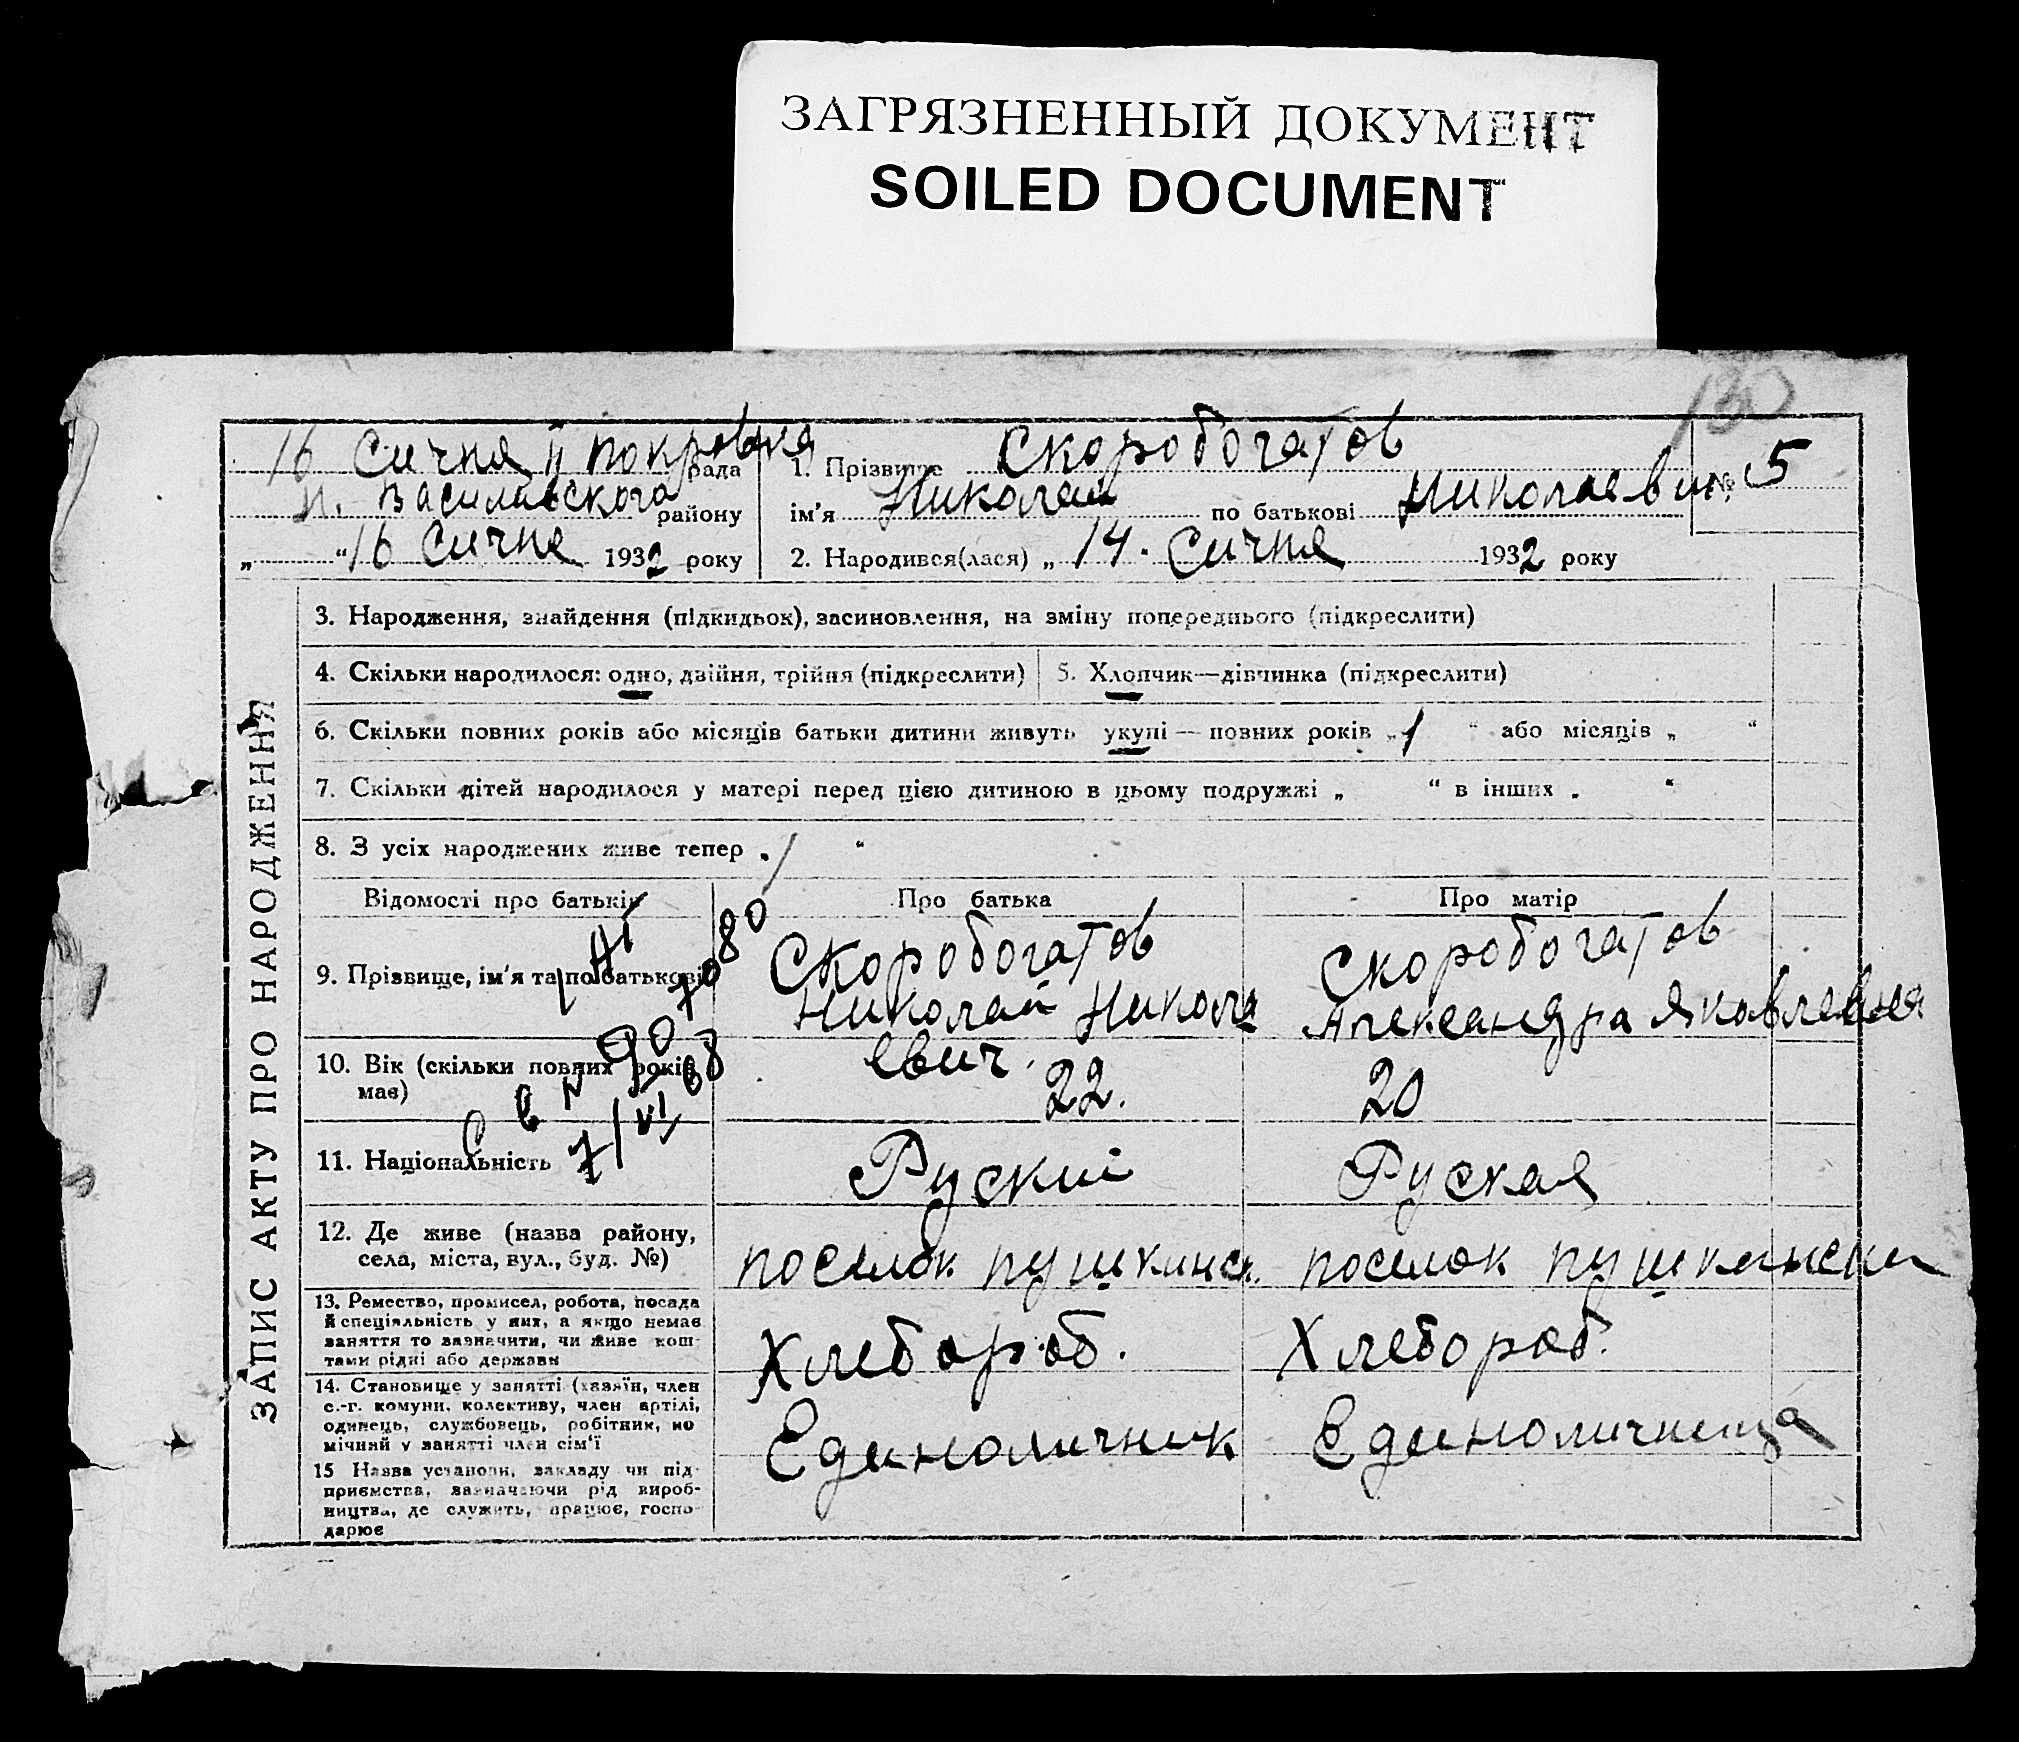 ЗАГРЯЗНЕННЫЙ ДОКУМЕНТ
SOILED DOCUMENT
130
16 Сичня II Покровка рада
Н. Василивского району
„ “ 16 Сичня 1932 року
1. Прізвище Скоробогатов
ім'я Николай по батькові Николаевич
№ 5
2. Народився(лася) „ 14. Сичня 1932 року
ЗАПИС АКТУ ПРО НАРОДЖЕННЯ
3. Народження, знайдення (підкидьок), засиновлення, на зміну попереднього (підкреслити)
4. Скільки народилося: одно, двійня, трійня (підкреслити) 5. Хлопчик—дівчинка (підкреслити)
6. Скільки повних років або місяців батьки дитини живуть укупі — повних років „ 1 “ або місяців „ “
7. Скільки дітей народилося у матері перед цією дитиною в цьому подружжі „ “ в інших „ “
8. З усіх народжених живе тепер „ / “
Відомості про батьків Про батька Про матір
9. Прізвище, ім'я та по батькові
Скоробогатов
Николай Никола
евич.
Скоробогатов
Александра Яковлевня
10. Вік (скільки повних років
має)
22.
20
11. Національність
7/VI
Руский
Руская
12. Де живе (назва району,
села, міста, вул., буд. №)
поселок пушкинск.
поселок пушкински
13. Ремество, промисел, робота, посада
й спеціяльність у них, а якщо немає
заняття то зазначити, чи живе кош-
тами рідні або держави
Хлебороб.
Хлебороб.
14. Становище у занятті (хазяїн, член
с.-г. комуни, колективу, член артілі,
одинець, службовець, робітник, по
мічний у занятті член сім'ї
Единоличник
Единоличница
15 Назва установи, закладу чи під-
приємства, зазначаючи рід вироб-
ництва, де служить, працює, госпо-
дарює